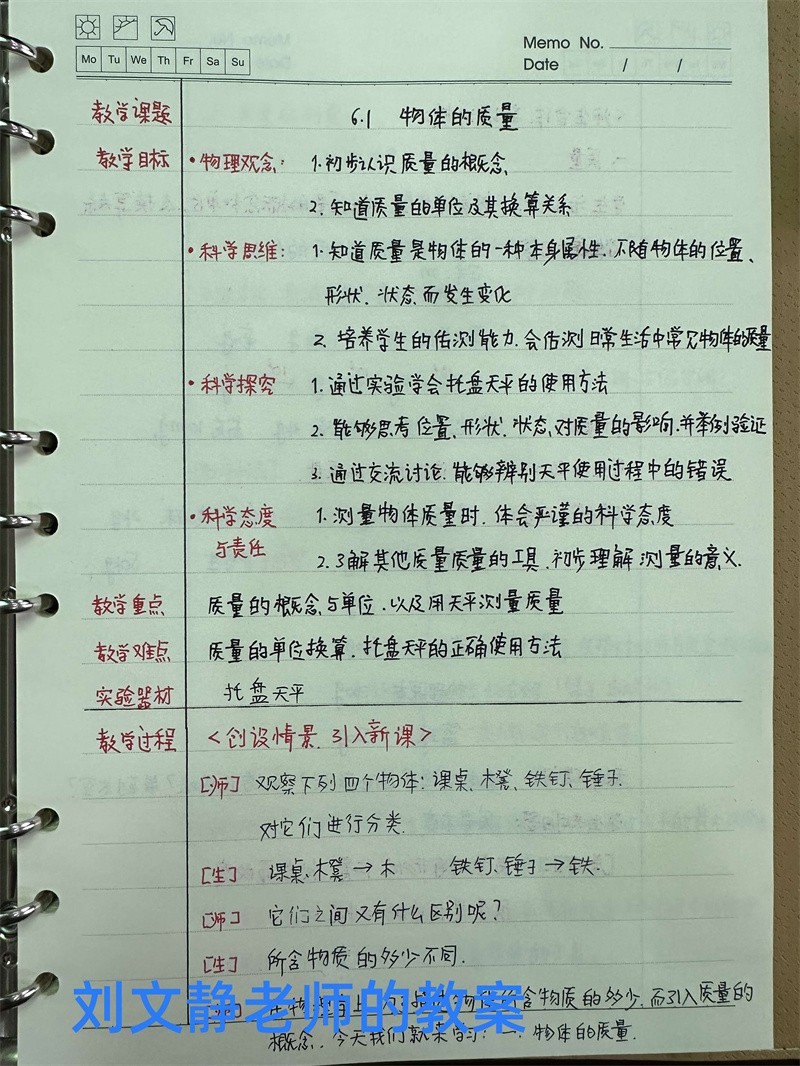 Memo No.
Mo Tu We Th Fr Sa Su
Date / /
教学课题 6.1 物体的质量
教学目标 •物理观念: 1.初步认识质量的概念
2. 知道质量的单位及其换算关系
•科学思维: 1.知道质量是物体的一种本身属性.不随物体的位置、
形状、状态而发生变化
2. 培养学生的估测能力.会估测日常生活中常见物体的质量
•科学探究 1.通过实验学会托盘天平的使用方法
2. 能够思考位置、形状、状态对质量的影响.并举例验证
3. 通过交流讨论.能够辨别天平使用过程中的错误
•科学态度 1.测量物体质量时.体会严谨的科学态度
与责任
2.了解其他质量质量的工具.初步理解测量的意义.
教学重点 质量的概念与单位.以及用天平测量质量
教学难点 质量的单位换算.托盘天平的正确使用方法
实验器材 托盘天平
教学过程 <创设情景.引入新课>
[师] 观察下列四个物体:课桌、木凳、铁钉、锤子.
对它们进行分类.
[生] 课桌、木凳→木 铁钉、锤子→铁.
[师] 它们之间又有什么区别呢?
[生] 所含物质的多少不同.
所含物质的多少.而引入质量的
概念. 今天我们就来学习:一.物体的质量.
刘文静老师的教案